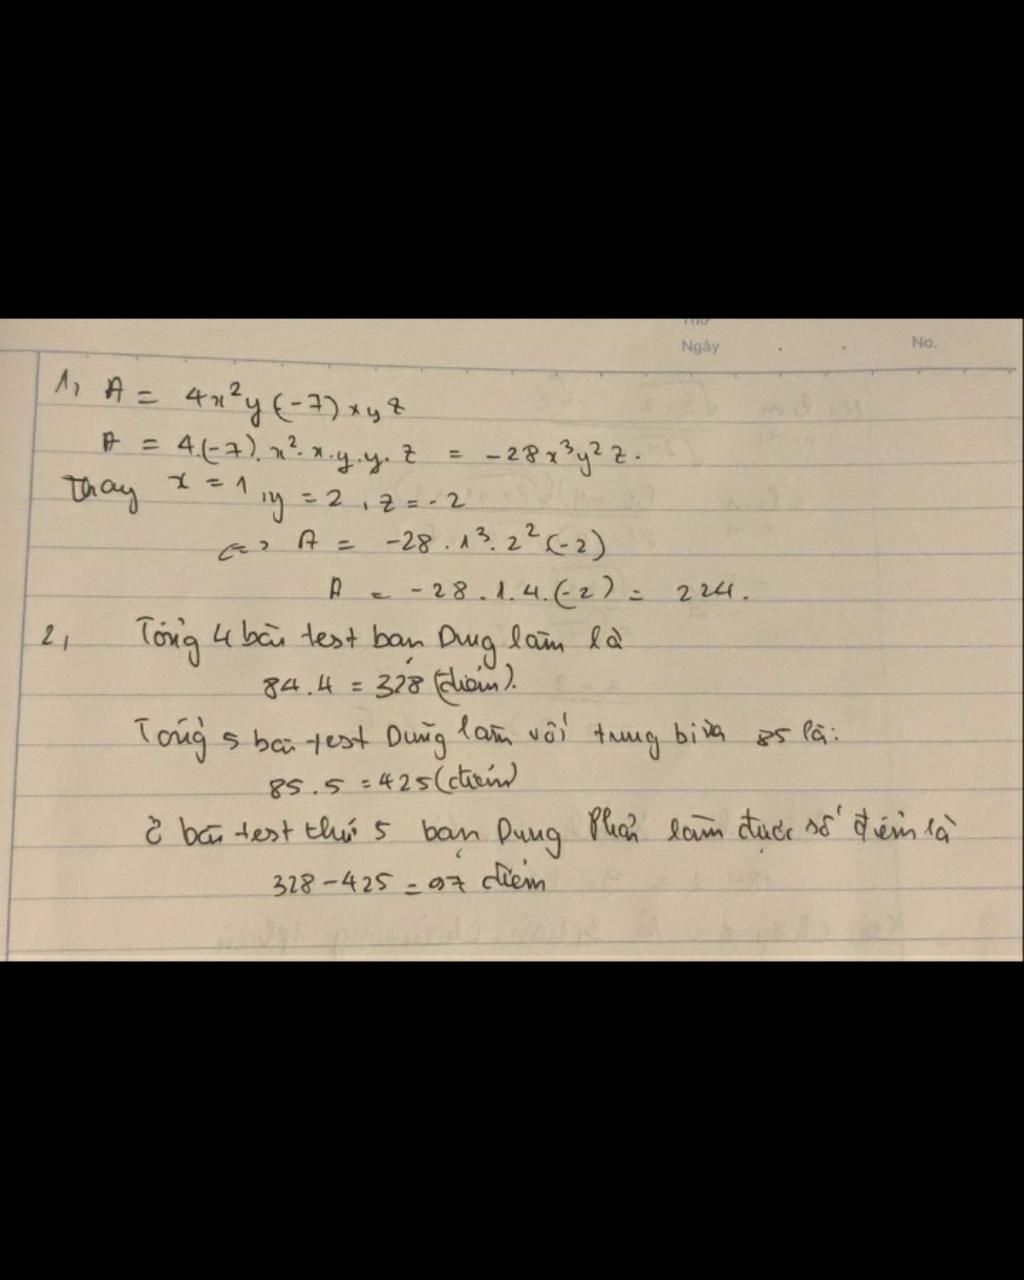 Thứ
Ngày . . No.
1, A = 4x²y(-7)xyz
A = 4.(-7).x².x.y.y.z = -28x³y²z.
Thay x = 1, y = 2, z = -2
<=> A = -28.1³.2²(-2)
A = -28.1.4.(-2) = 224.
2, Tổng 4 bài test bạn Dung làm là
84.4 = 328 (điểm).
Tổng 5 bài test Dung làm với trung bình 85 là:
85.5 = 425 (điểm)
Ở bài test thứ 5 bạn Dung phải làm được số điểm là
328-425 = 97 điểm